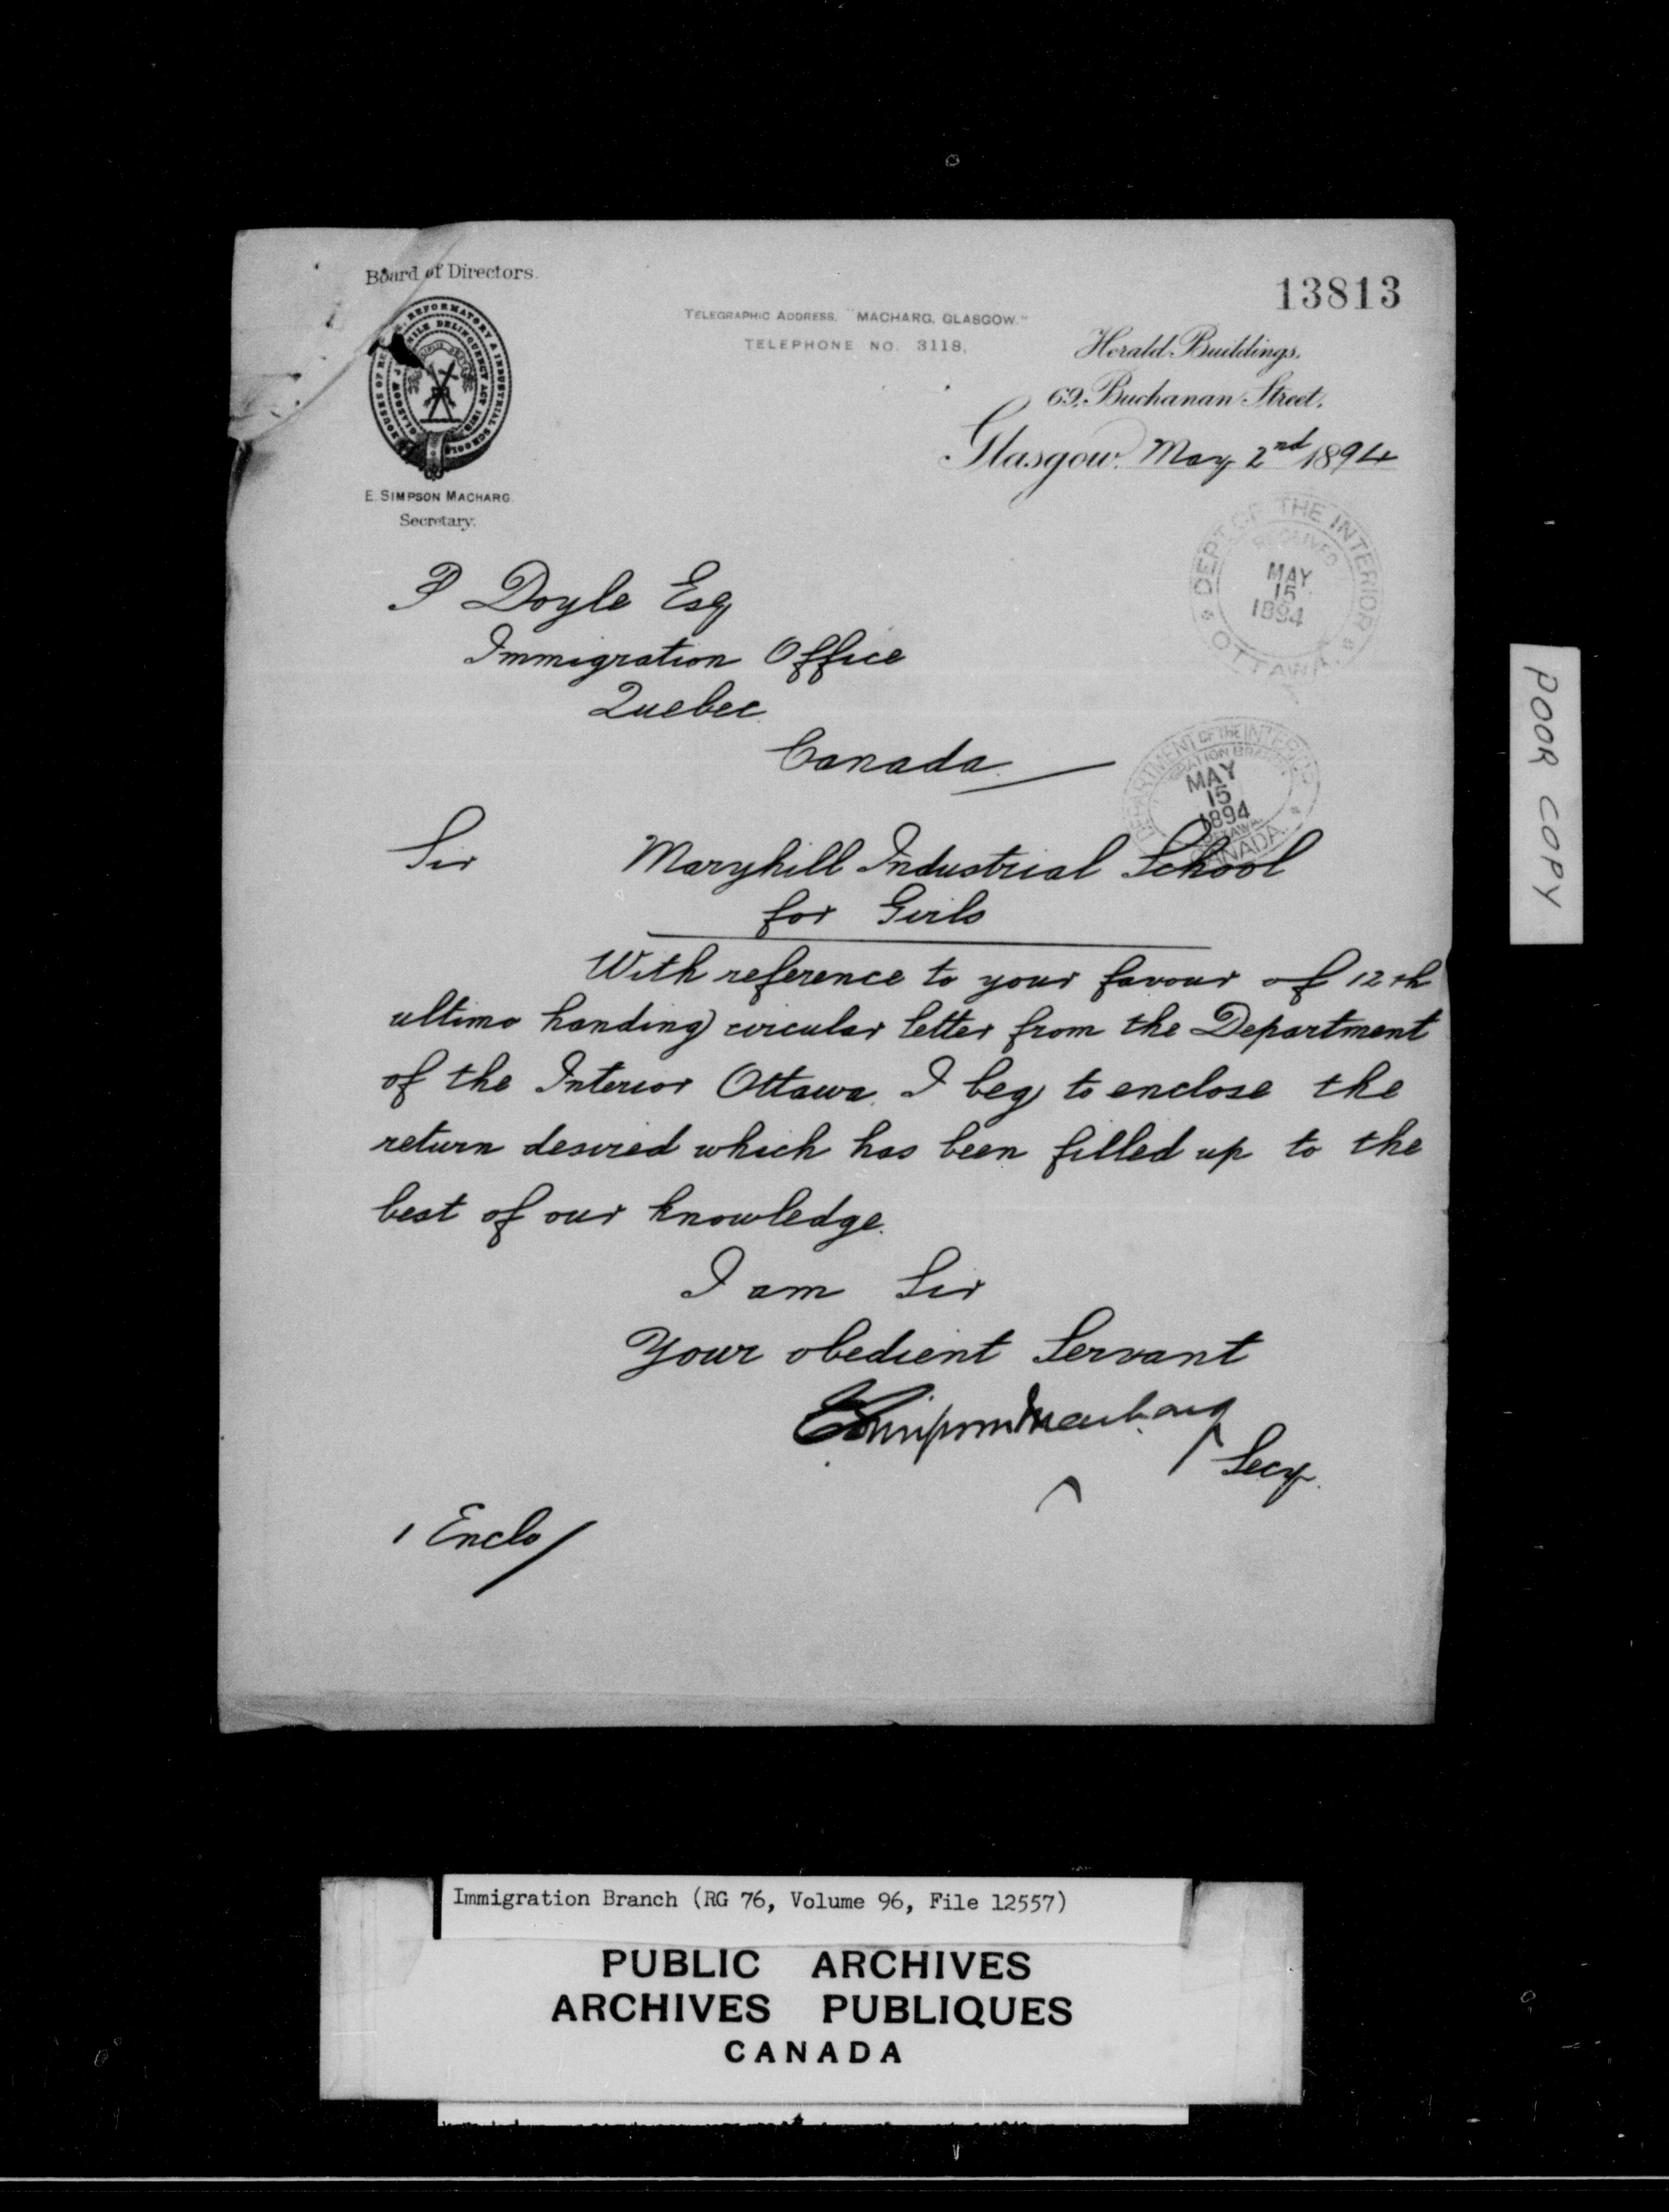 Board of Directors.
13813
TELEGRAPHIC ADDRESS. "MACHARG, GLASGOW."
TELEPHONE NO. 3118.
Herald Buildings,
69, Buchanan Street,
Glasgow, May 2nd 1894
REFORMATORY & INDUSTRIAL SCHOOLS
HOUSES OF
DELINQUENCY ACT 1878
GLASGOW
E. SIMPSON MACHARG.
Secretary.
DEPT. OF THE INTERIOR
RECEIVED
MAY
15
1894
OTTAWA
P Doyle Esq
Immigration Office
Quebec
Canada
DEPARTMENT OF THE INTERIOR
MAY
15
1894
OTTAWA
CANADA
Sir Maryhill Industrial School
for Girls
With reference to your favour of 12th
ultimo handing circular letter from the Department
of the Interior Ottawa. I beg to enclose the
return desired which has been filled up to the
best of our knowledge.
I am Sir
Your obedient Servant
E Simpson Macharg
Secy.
1 Enclo/
POOR COPY
Immigration Branch (RG 76, Volume 96, File 12557)
PUBLIC ARCHIVES
ARCHIVES PUBLIQUES
CANADA